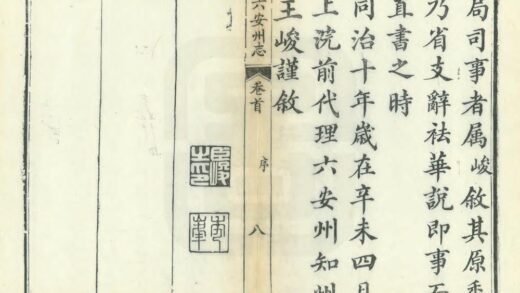 局司事者属峻敘其原委
乃省支辭祛華說即事
直書之時
同治十年歲在辛未四月
上浣前代理六安州知州
王峻謹敘
六安州志
卷首
序
八